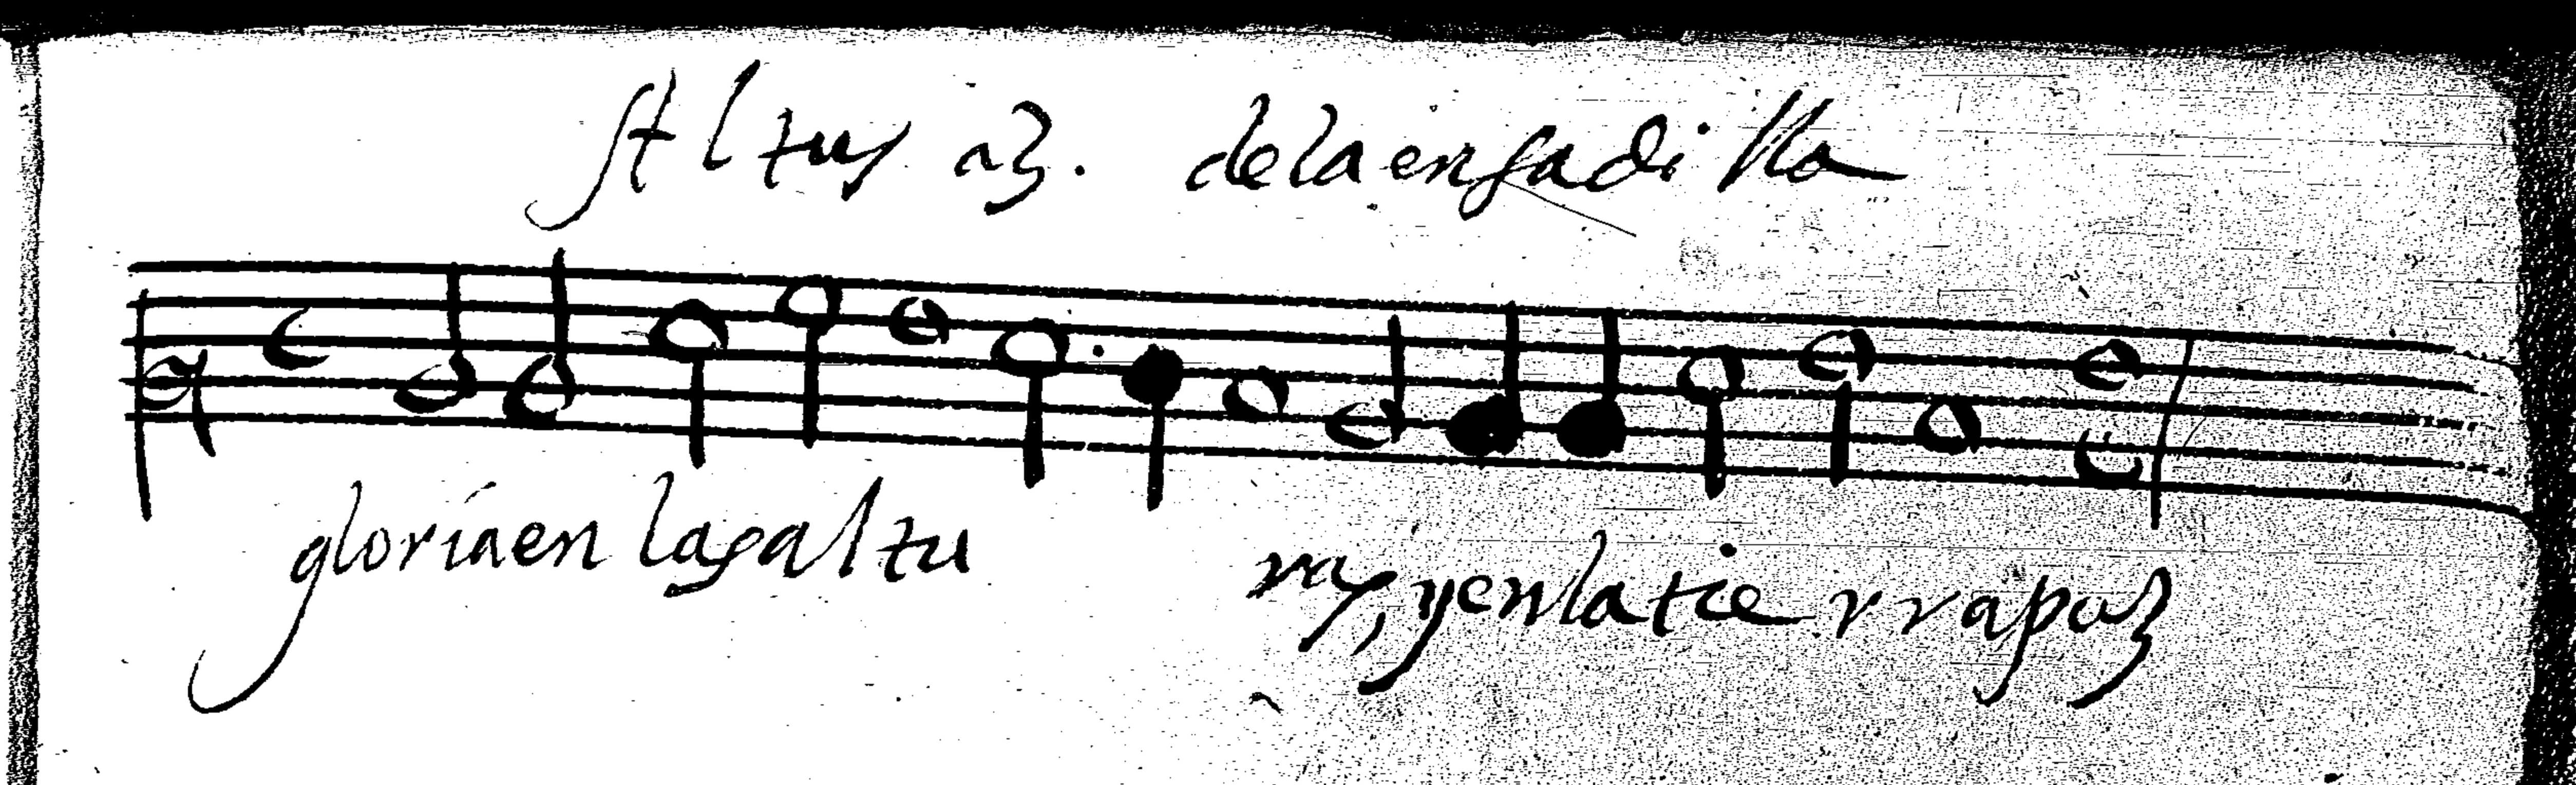 Altus a3. dela ensadilla
gloria en lasaltu ras, yenlatie rrapaz